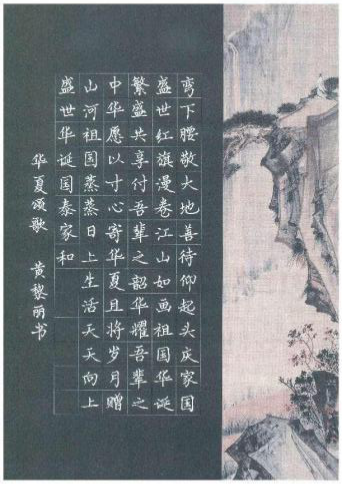 弯下腰敬大地善待仰起头庆家国
盛世红旗漫卷江山如画祖国华诞
繁盛共享付吾辈之韶华耀吾辈之
中华愿以寸心寄华夏且将岁月赠
山河祖国蒸蒸日上生活天天向上
盛世华诞国泰家和
华夏颂歌 黄黎丽书